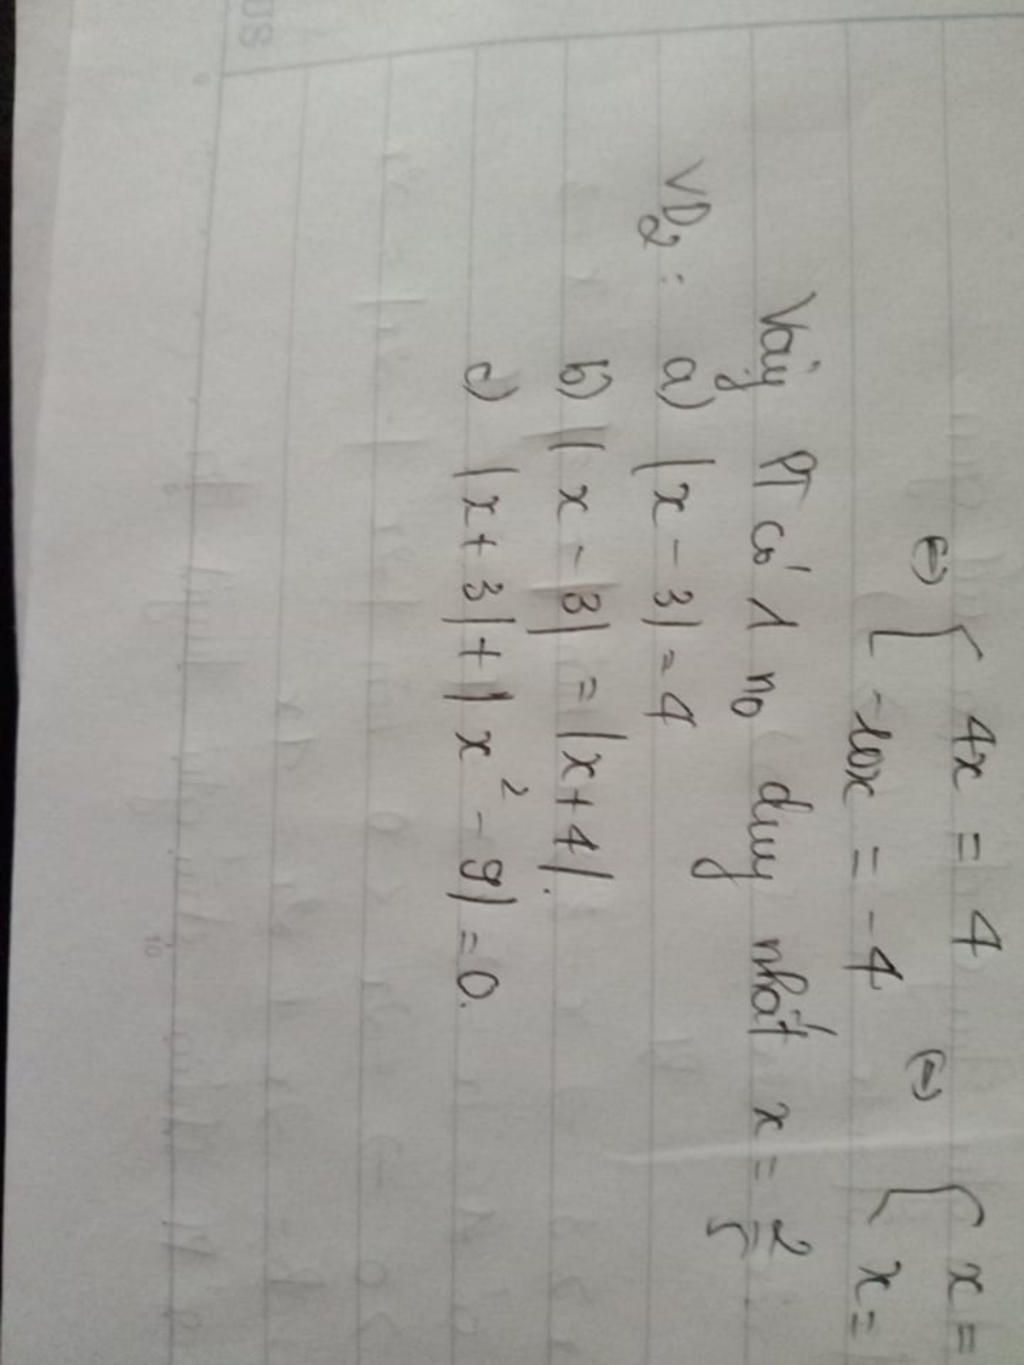 ⇔ [ 4x = 4 ⇔ [ x =
-10x = -4 x =
Vậy PT có 1 no duy nhất x = 2/5
VD2: a) |x - 3| = 4
b) |x - 3| = |x + 4|.
c) |x + 3| + |x² - 9| = 0.